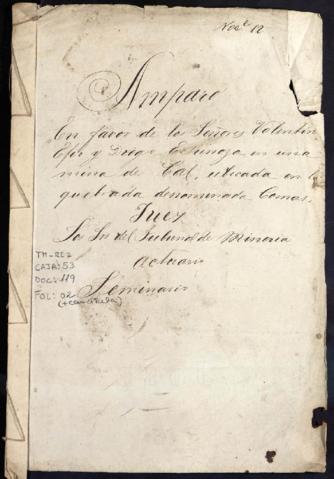 Nov.e 12
Amparo
En favor de los Señores Valentin
y Diego Espinoza en una
mina de Cal, uticada en la
quebrada denominada Comas.
Juez
La Sr del Tribunal de Mineria
Actuario
Seminario
TM-RE2
CAJA: 53
DOC: 119
FOL: 02
(+carátula)